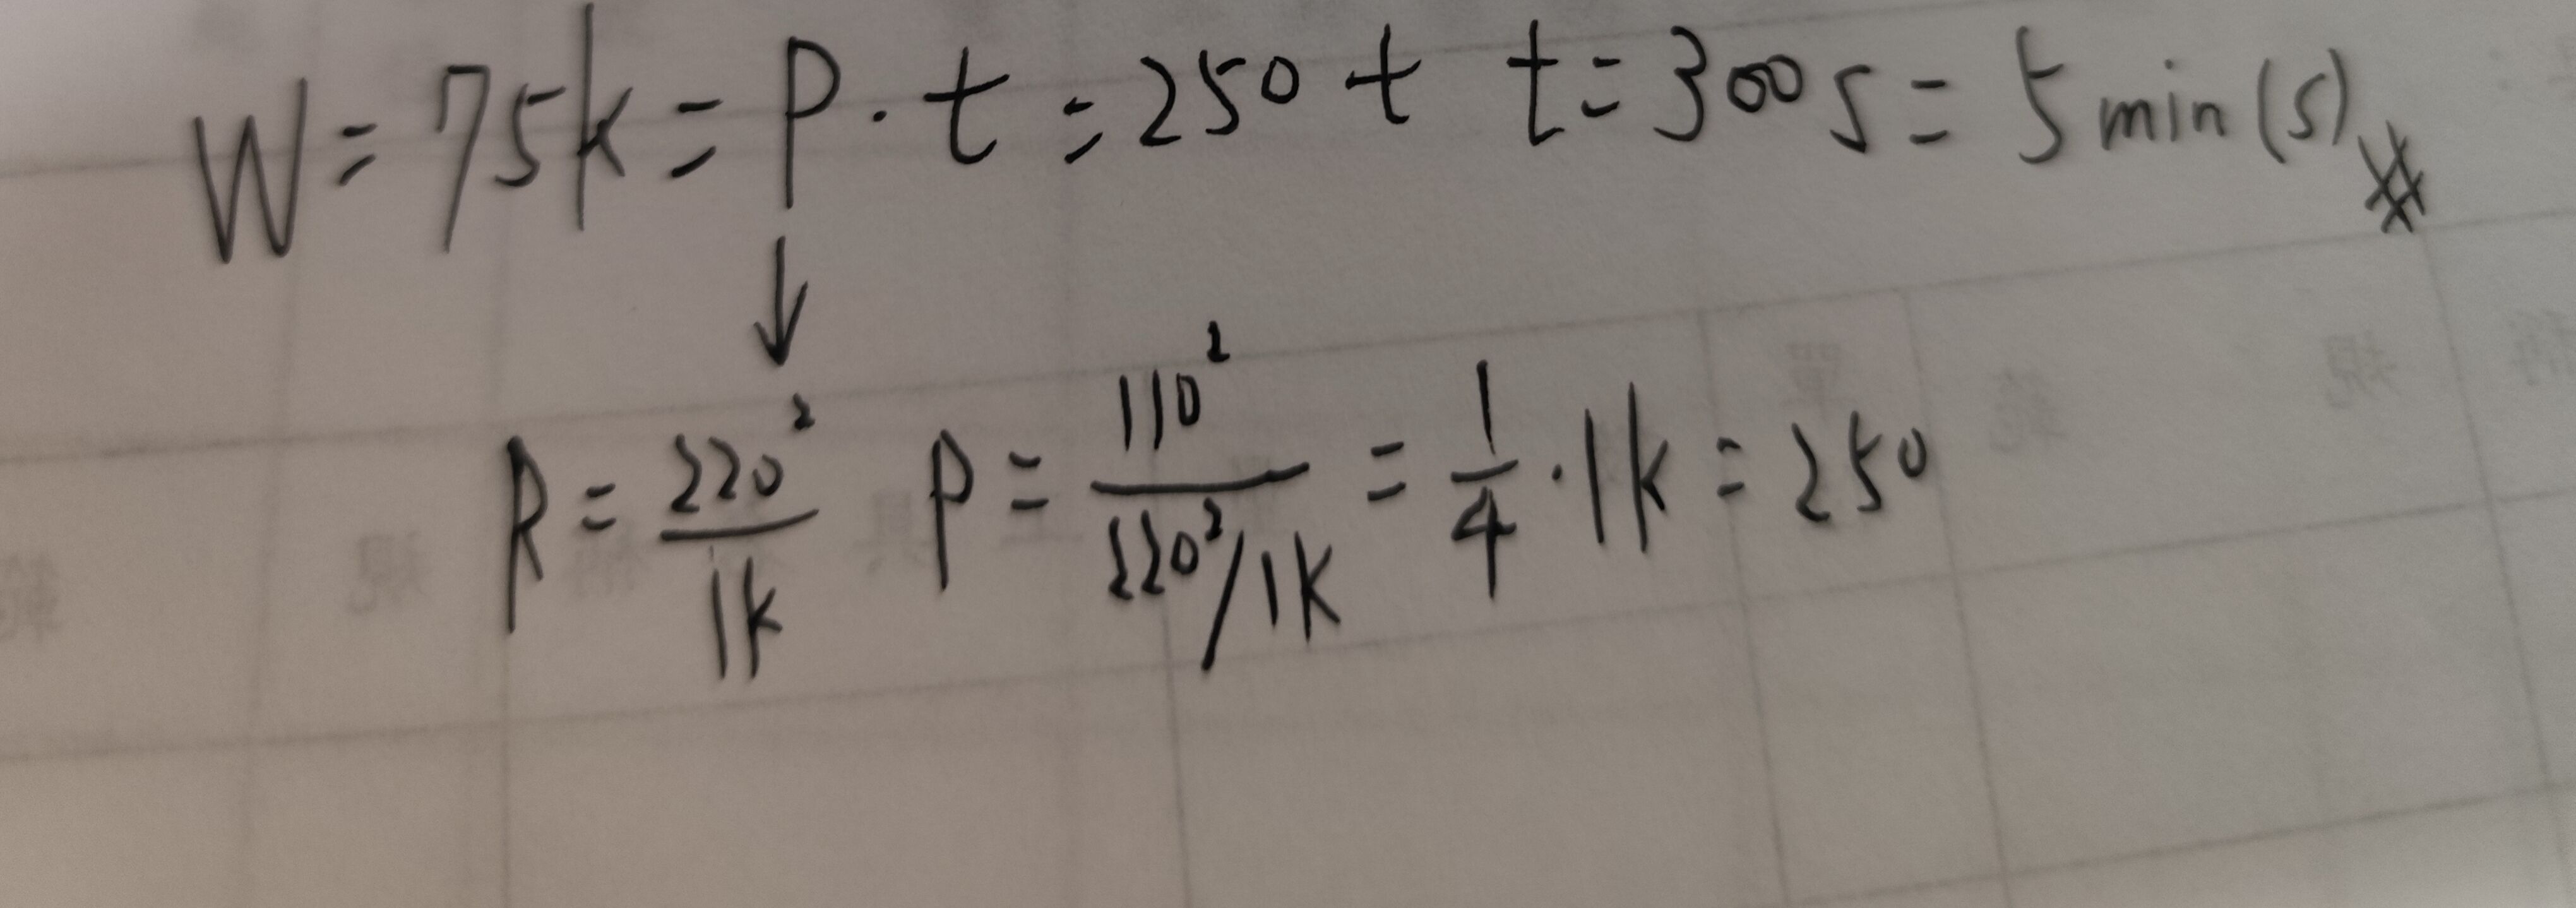 W = 75k = P · t = 250 t t = 300 s = 5 min (s)
↓
R = 220² / 1k P = 110² / (220²/1K) = 1/4 · 1k = 250